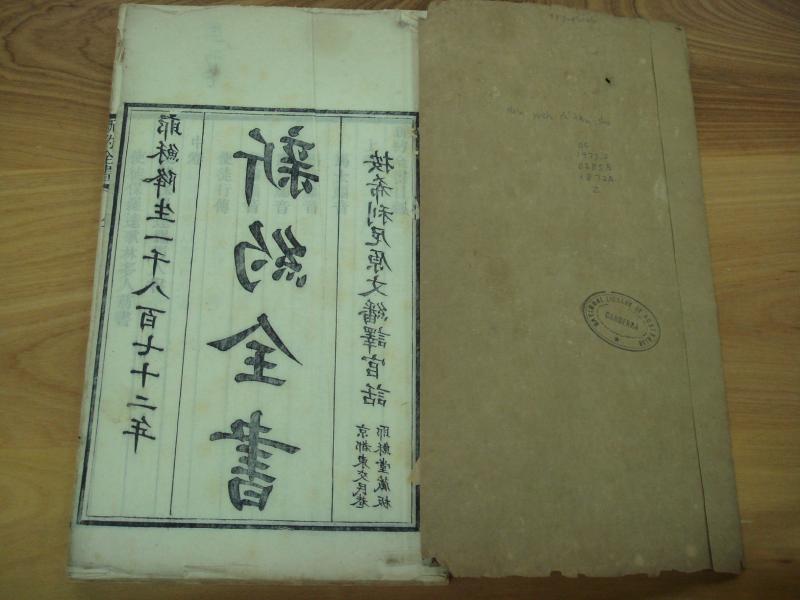 新約全書
耶穌降生一千八百七十二年
新約全書
按希利尼原文繙譯官話
京都東交民巷
耶穌堂藏板
1872A
2
NATIONAL LIBRARY OF AUSTRALIA
CANBERRA